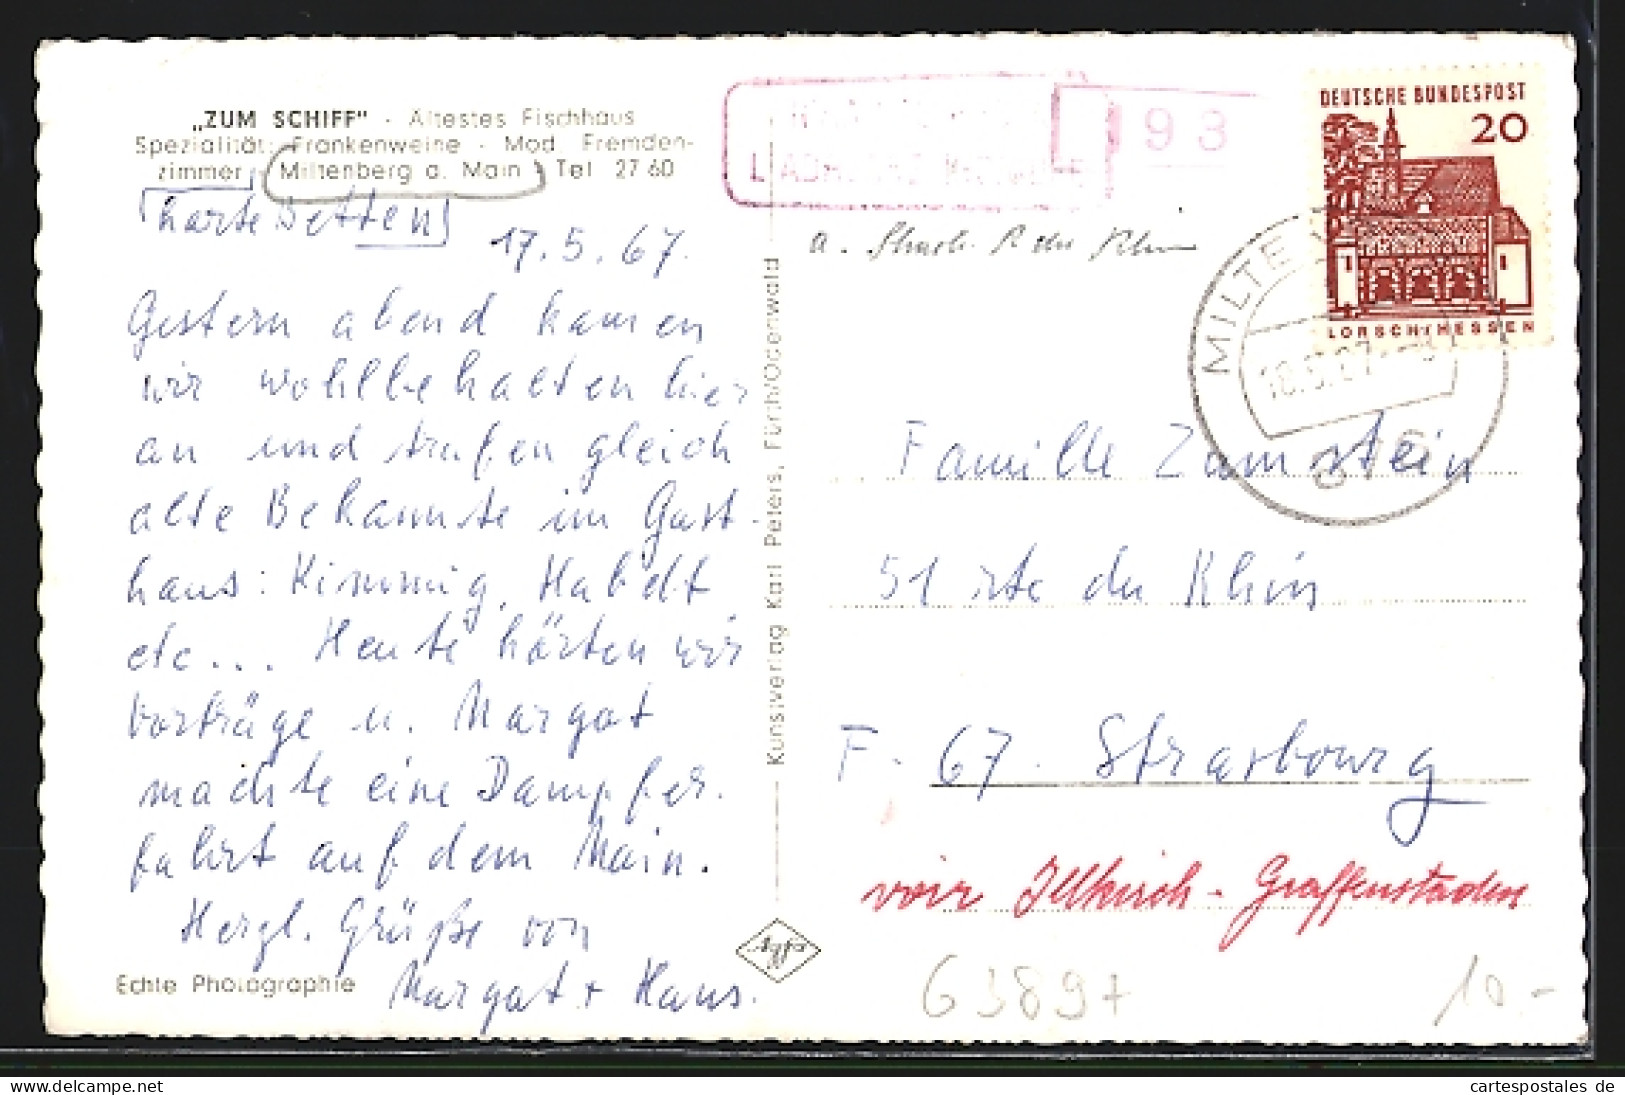 „ZUM SCHIFF" - Ältestes Fischhaus
Spezialität: Frankenweine - Mod. Fremden-
zimmer Miltenberg a. Main Tel 27 60
17.5.67.
Gestern abend kamen
wir wohlbehalten hier
an und trafen gleich
alte Bekannte im Gast-
haus: Kimmig,
etc... Heute hörten wir
Vorträge u. Margot
machte eine Dampfer-
fahrt auf dem Main.
Herzl. Grüße von
Margot + Hans.
Echte Photographie
Kunstverlag Karl Peters, Fürth/Odenwald
Agfa
98
DEUTSCHE BUNDESPOST
20
LORSCH/HESSEN
MILTE
Familie Zumstein
51 rte du Rhin
F-67 Strasbourg
voir Illkirch-Graffenstaden
G389+
10.-
cartespostales de